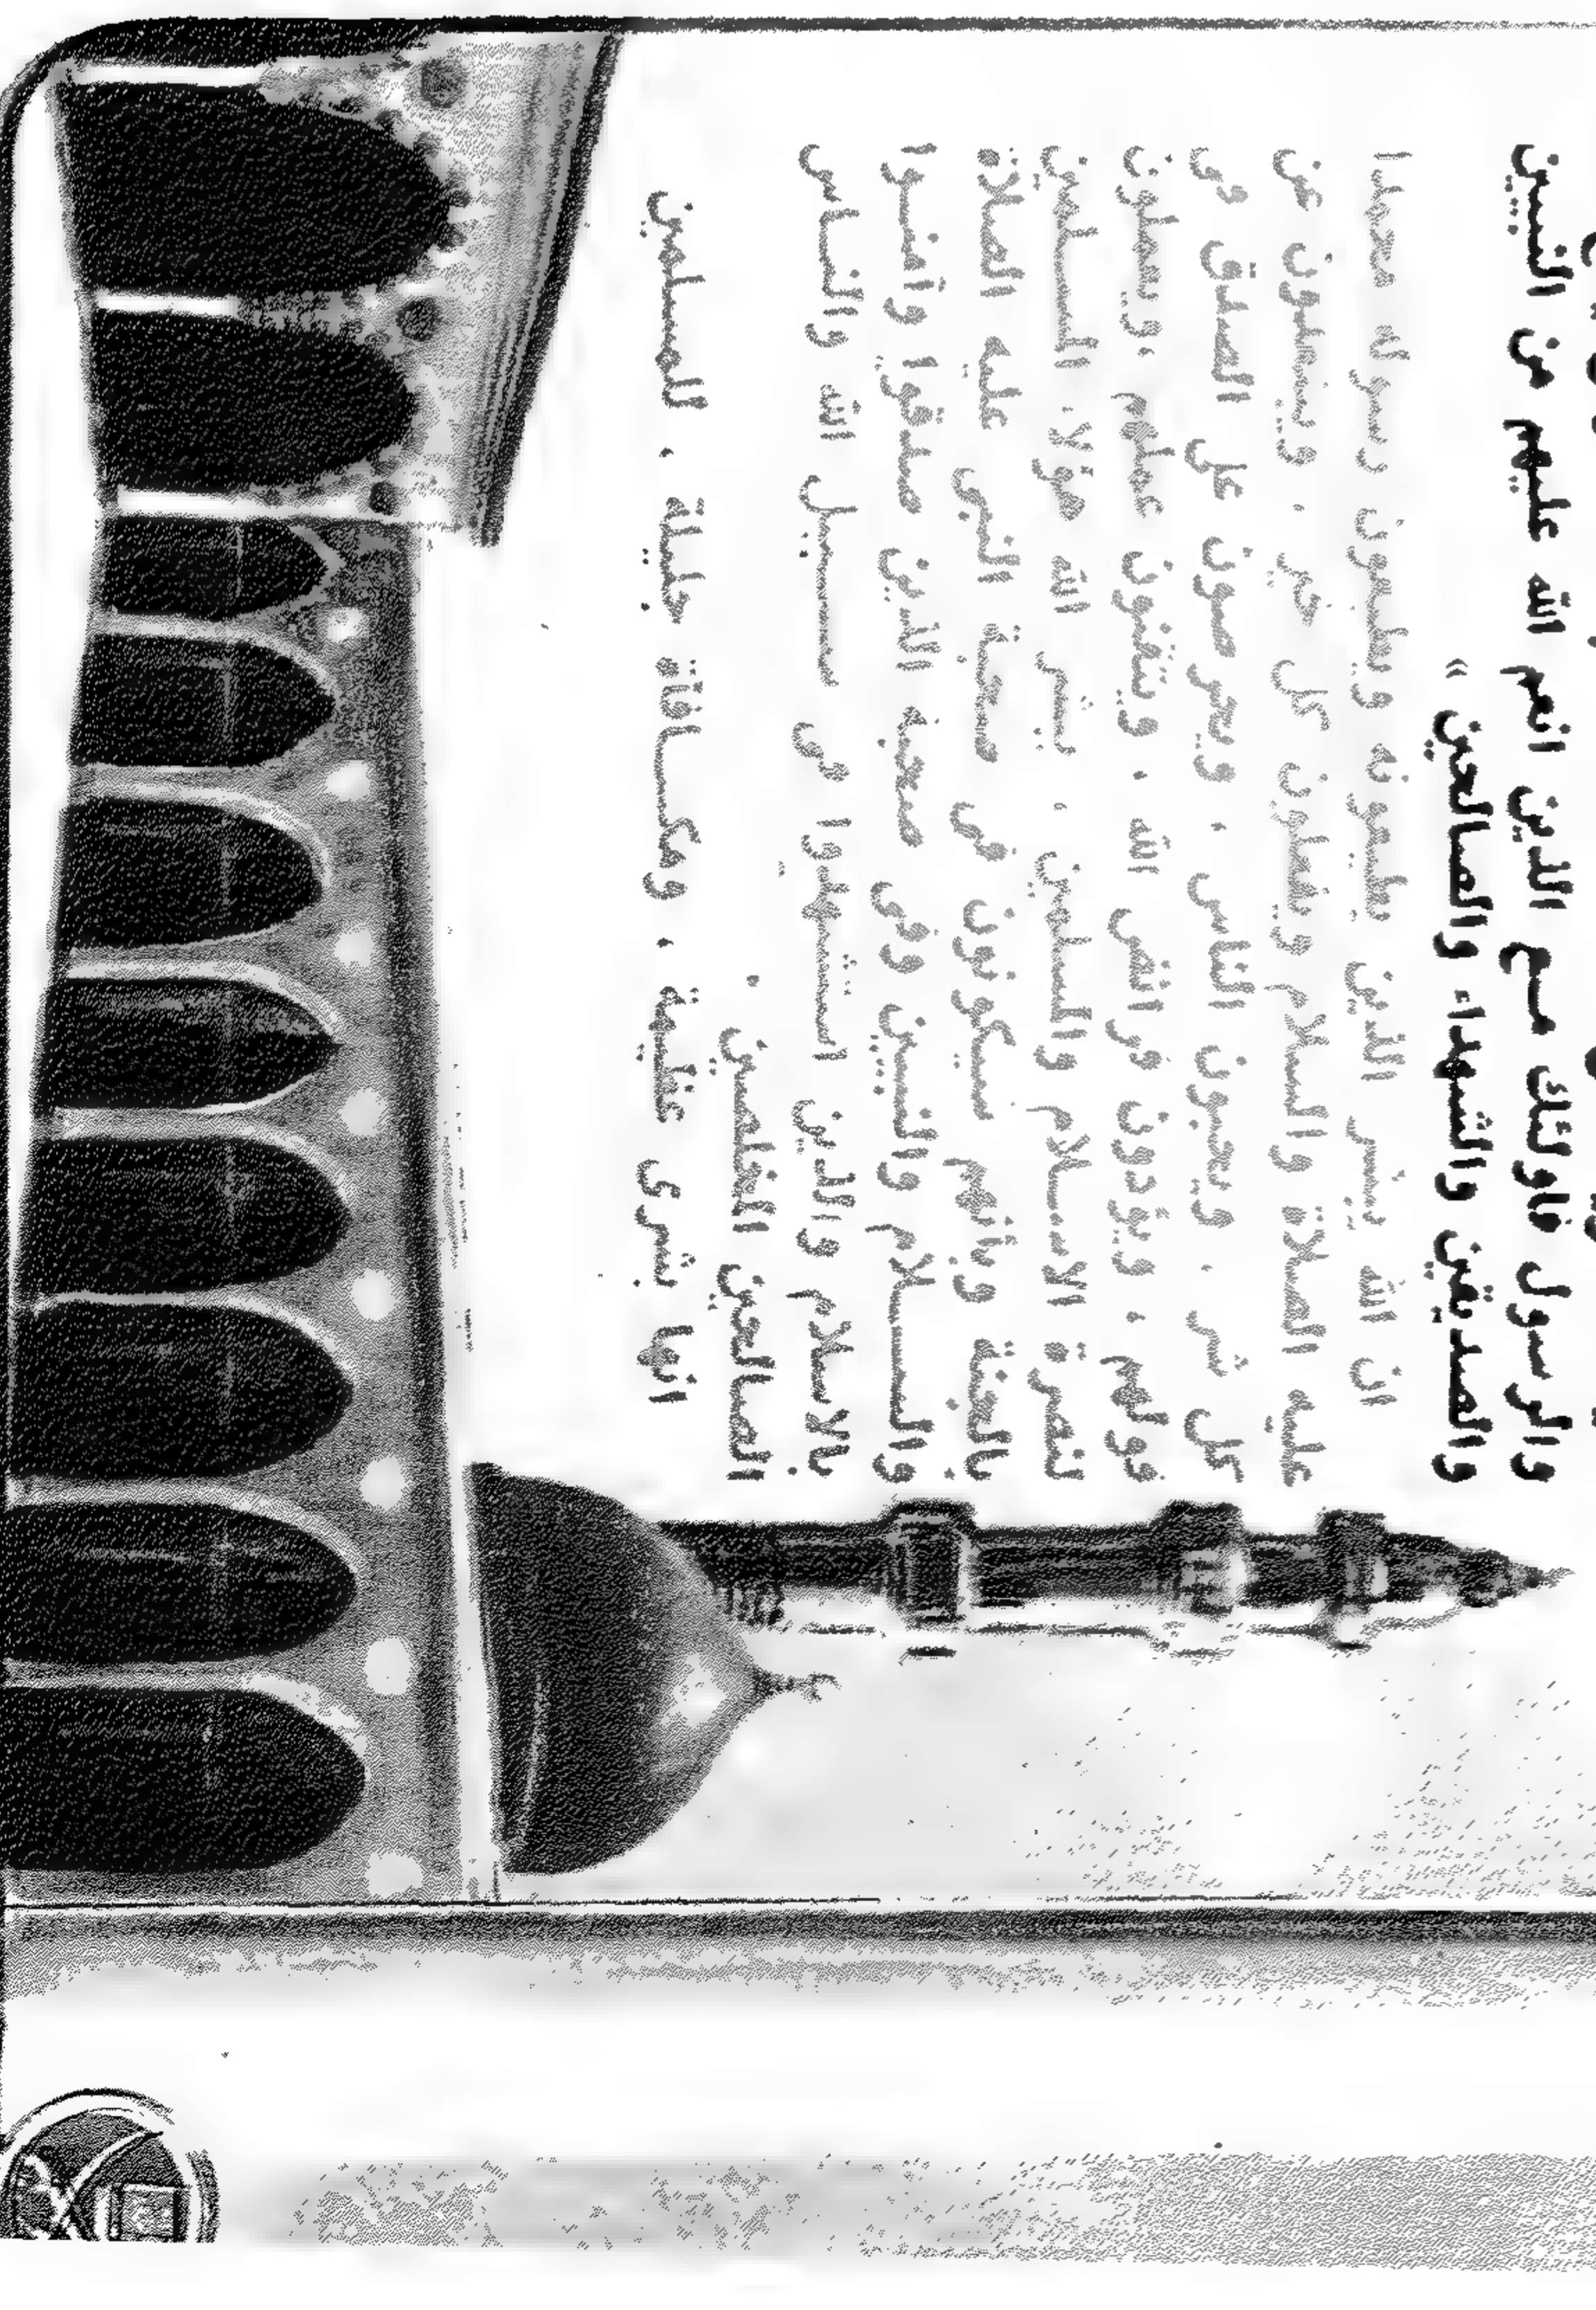 والرسول فاولئك مع الذين انعم الله عليهم من النبيين
والصديقين والشهداء والصالحين »
ان الله يبشر الذين يطيعونه ويطيعون رسوله محمدا
عليه الصلاة والسلام ويفعلون كل خير . ويبتعدون عن
كل شر . ويحبون الناس . ويحرصون على الصدق في
قولهم . ويؤدون فرائض الله . ويتقنون عملهم . ويعملون
لنصرة الاسلام والمسلمين . يبشر الله هؤلاء المسلمين
بالجنة وبأنهم سيكونون في صحبة النبي عليه الصلاة
والسلام والنبيين وفي صحبة الذين صدقوا وآمنوا
بالاسلام والذين استشهدوا في سبيل الله والناس
الصالحين المخلصين .
انها بشرى عظيمة ، ومكافأة جليلة ، للمسلمين